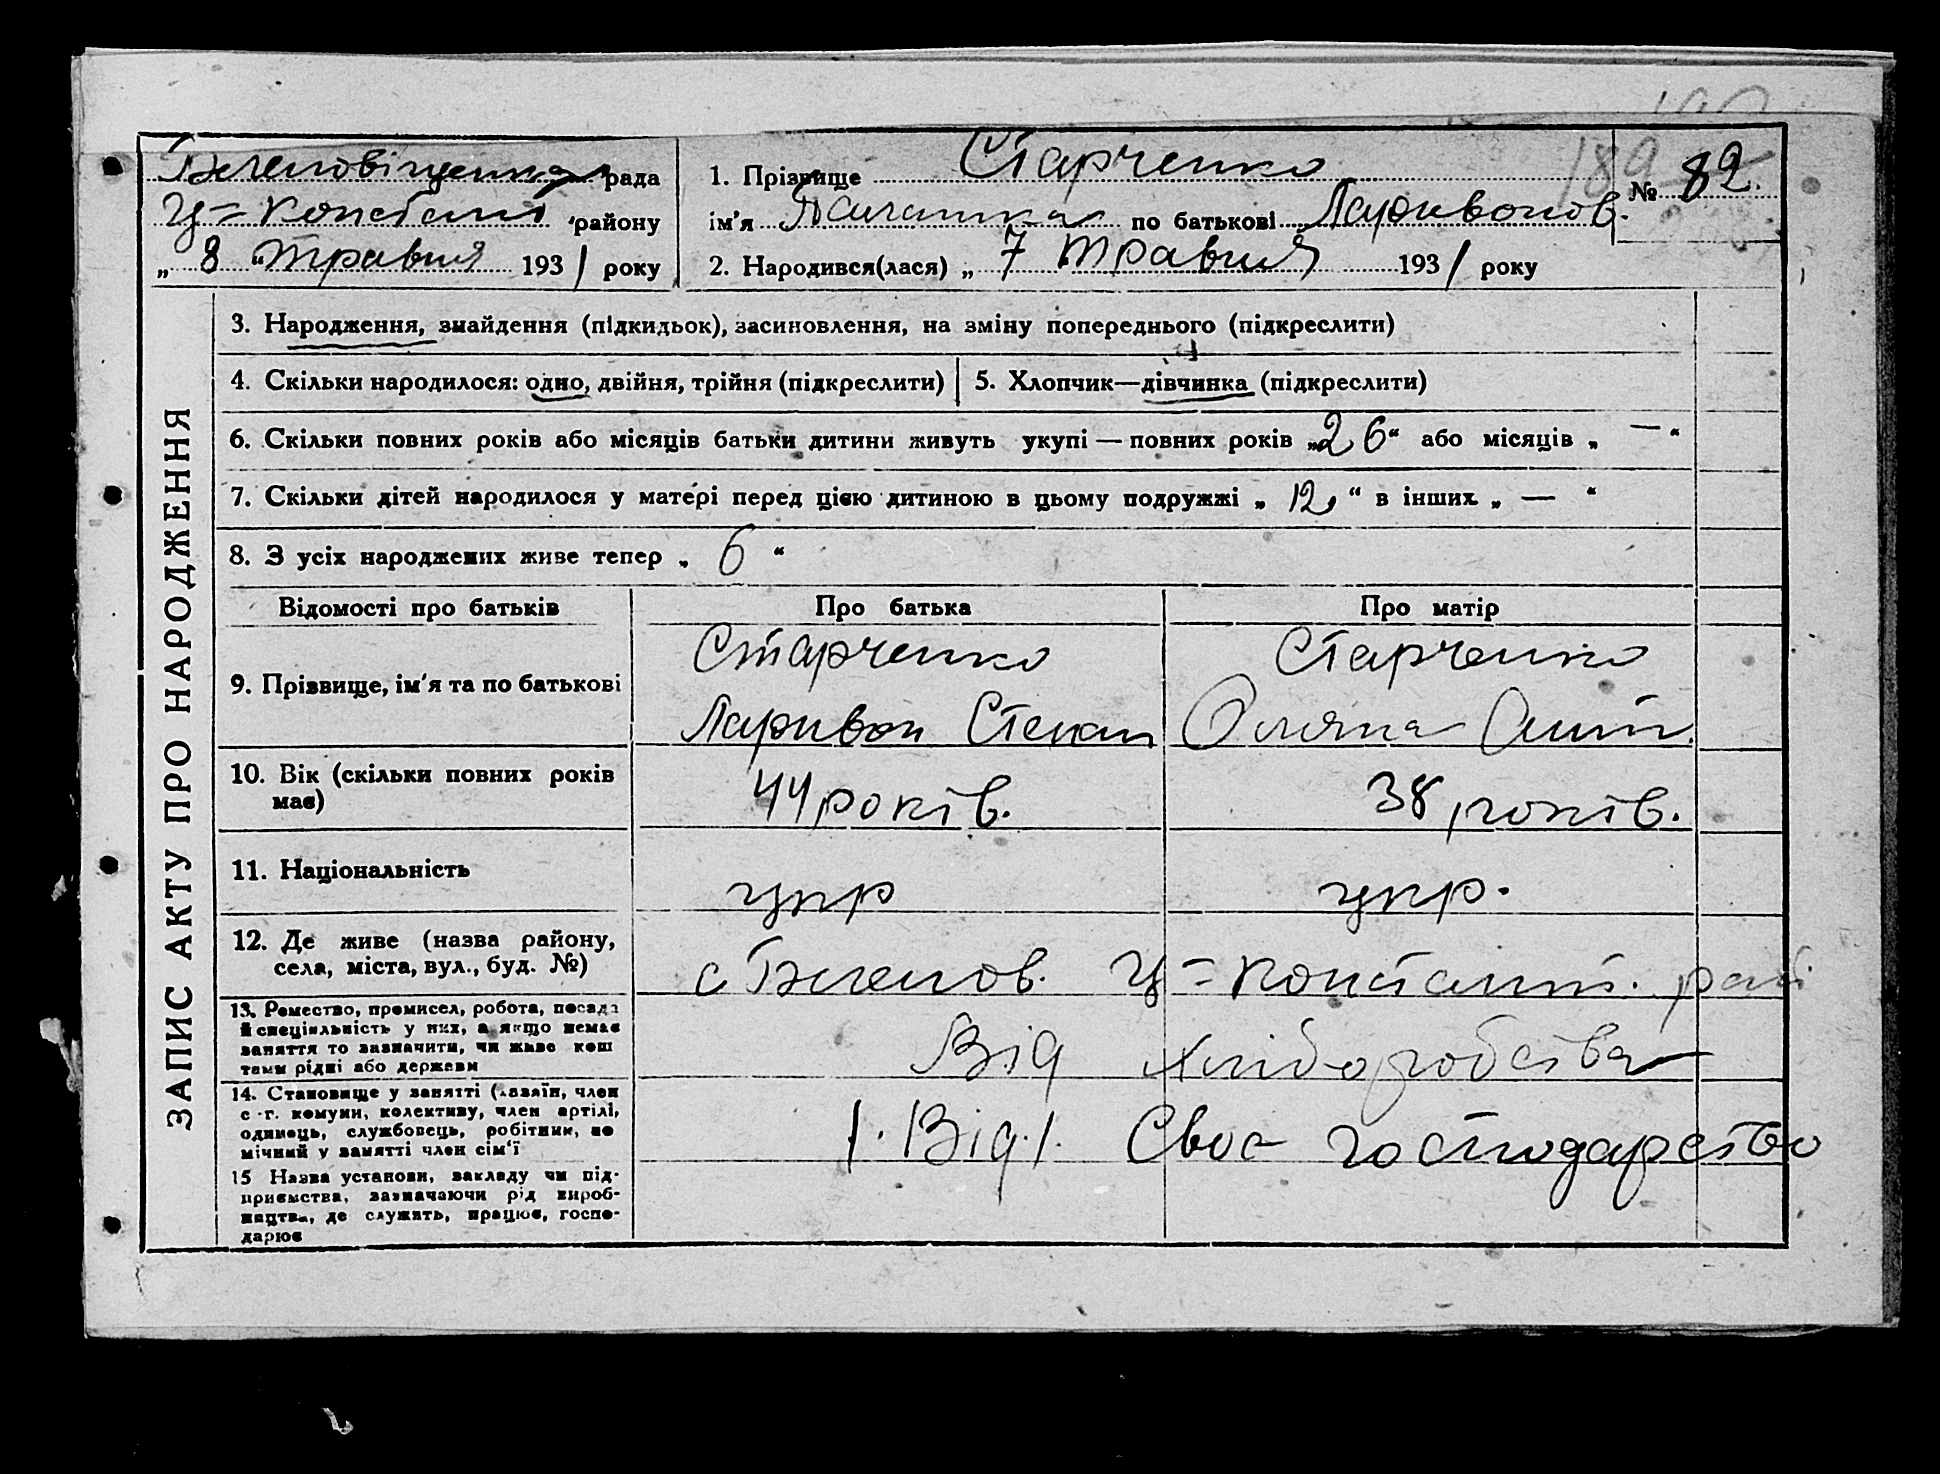 Благовіщенка рада
Ц=Констант району
„ 8 “ травня 1931 року
1. Прізвище Старченко
ім'я Палашка по батькові Ларивонов.
2. Народився(лася) „ 7 травня 1931 року
№ 82.
189
ЗАПИС АКТУ ПРО НАРОДЖЕННЯ
3. Народження, знайдення (підкидьок), засиновлення, на зміну попереднього (підкреслити)
4. Скільки народилося: одно, двійня, трійня (підкреслити)
5. Хлопчик—дівчинка (підкреслити)
6. Скільки повних років або місяців батьки дитини живуть укупі — повних років „26“ або місяців „ — “
7. Скільки дітей народилося у матері перед цією дитиною в цьому подружжі „ 12 “ в інших „ — “
8. З усіх народжених живе тепер „ 6 “
Відомості про батьків
Про батька
Про матір
9. Прізвище, ім'я та по батькові
Старченко
Ларивон Степан
Старченко
Оляна Онит.
10. Вік (скільки повних років
має)
44 років.
38 років.
11. Національність
укр
укр.
12. Де живе (назва району,
села, міста, вул., буд. №)
с Благов. Ц=Констант. рай.
13. Ремество, промисел, робота, посада
й спеціяльність у них, а якщо немає
заняття то зазначити, чи живе кош
тами рідні або держави
Від хліборобства
14. Становище у занятті (хазяїн, член
с.-г. комуни, колективу, член артілі,
одинець, службовець, робітник, по
мічний у занятті член сім'ї
Від. Своє господарство
15 Назва установи, закладу чи під-
приємства, зазначаючи рід вироб-
ництва, де служить, працює, госпо-
дарює